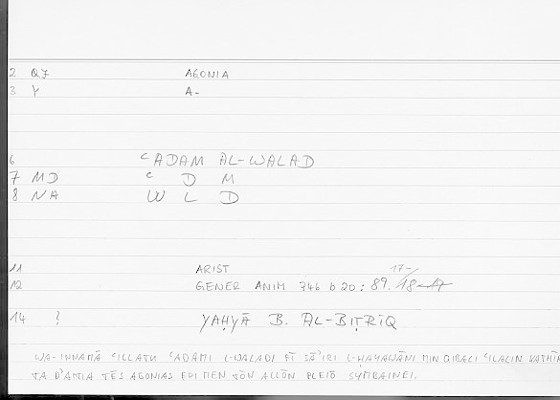 2 QJ AGONIA
3 Y A-
6 ᶜADAM AL-WALAD
7 MD ᶜ D M
8 NA W L D
11 ARIST 17-
12 GENER ANIM 746 b 20 : 89.
14 ? YAḤYĀ B. AL-BIṬRĪQ
WA-INNAMĀ ᶜILLATU ᶜADAMI L-WALADI FĪ SĀʾIRI L-ḤAYAWĀNI MIN QIBALI ᶜILALIN KATHĪR
TA D'AITIA TĒS AGONIAS EPI MEN TŌN ALLŌN PLEIŌ SYMBAINEI.